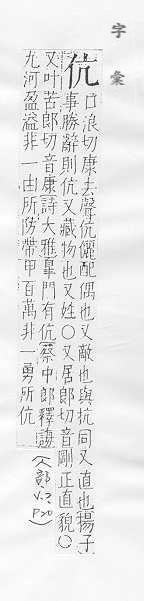 字彙
伉 口浪切康去聲伉儷配偶也又敵也與抗同又直也揚子
事勝辭則伉又藏物也又姓○又居郎切音剛正直貌○
又叶苦郎切音康詩大雅臯門有伉蔡中郎釋誨
九河盈溢非一由所防帶甲百萬非一勇所伉
(人部
V.2
P20)